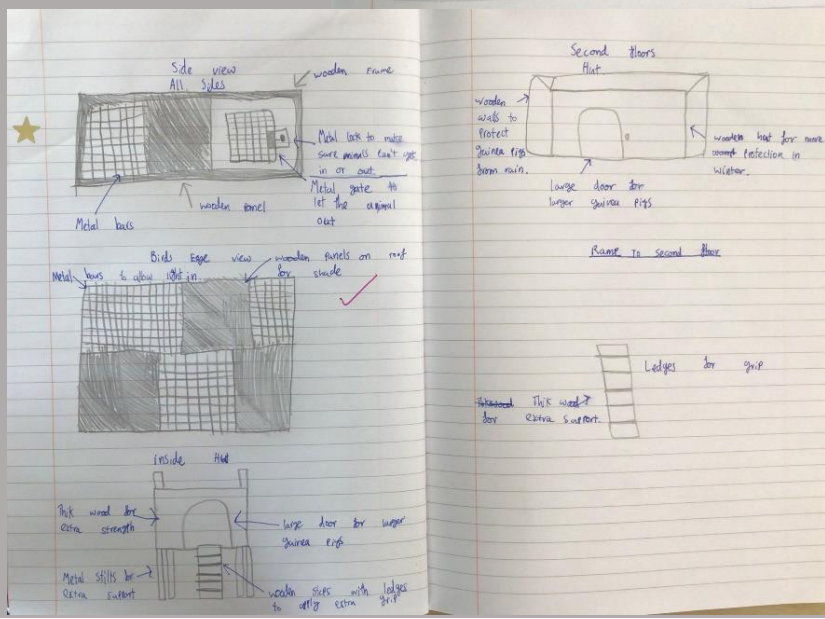 Side view
All Sides
wooden Frame
Metal lock to make
sure animals can't get
in or out
Metal gate to
let the animal
out
wooden panel
Metal bars
Birds Eye view
wooden panels on roof
for shade
Metal bars to allow light in
Inside Hut
Thik wood for
extra strength
large door for larger
guinea pigs
Metal stilts for
extra support
wooden steps with ledges
to apply extra grip
Second floors
Hut
wooden
walls to
Protect
guinea pigs
from rain.
wooden hut for more
protection in
winter.
large door for
larger guinea pigs
Ramp to second floor
Ledges for grip
Thik wood
for extra support.